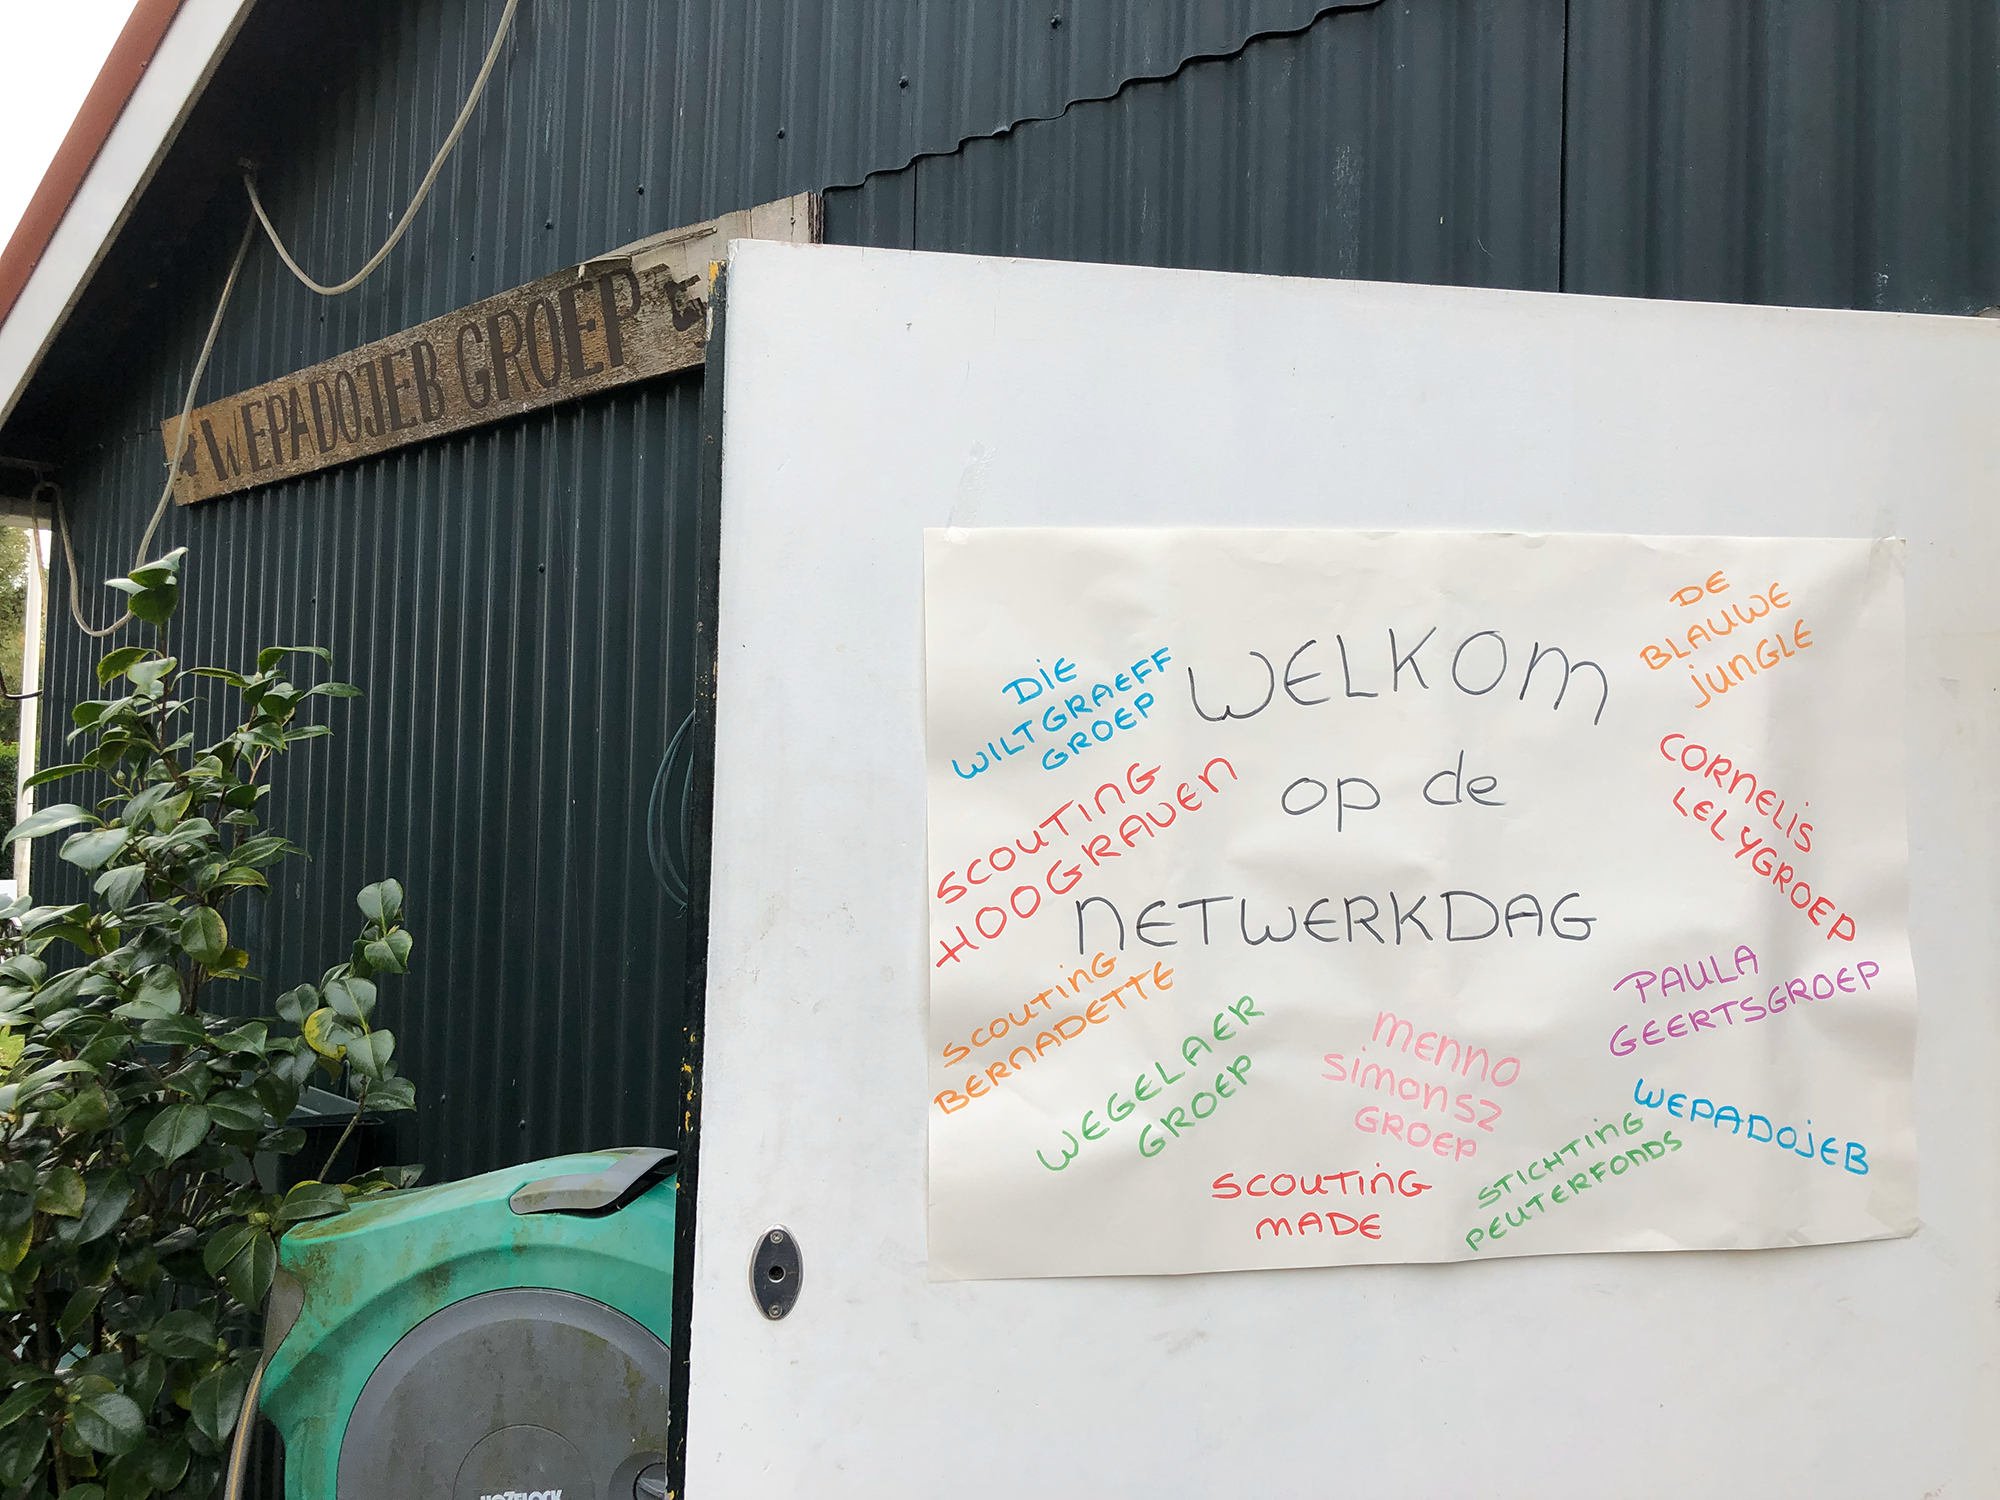 WEPADOJEB GROEP
WELKOM
op de
NETWERKDAG
DIE
WILTGRAEFF
GROEP
SCOUTING
HOOGRAVEN
SCOUTING
BERNADETTE
WEGELAER
GROEP
MENNO
SIMONSZ
GROEP
SCOUTING
MADE
STICHTING
PEUTERFONDS
WEPADOJEB
PAULA
GEERTSGROEP
CORNELIS
LELYGROEP
DE
BLAUWE
JUNGLE
HOZELOCK